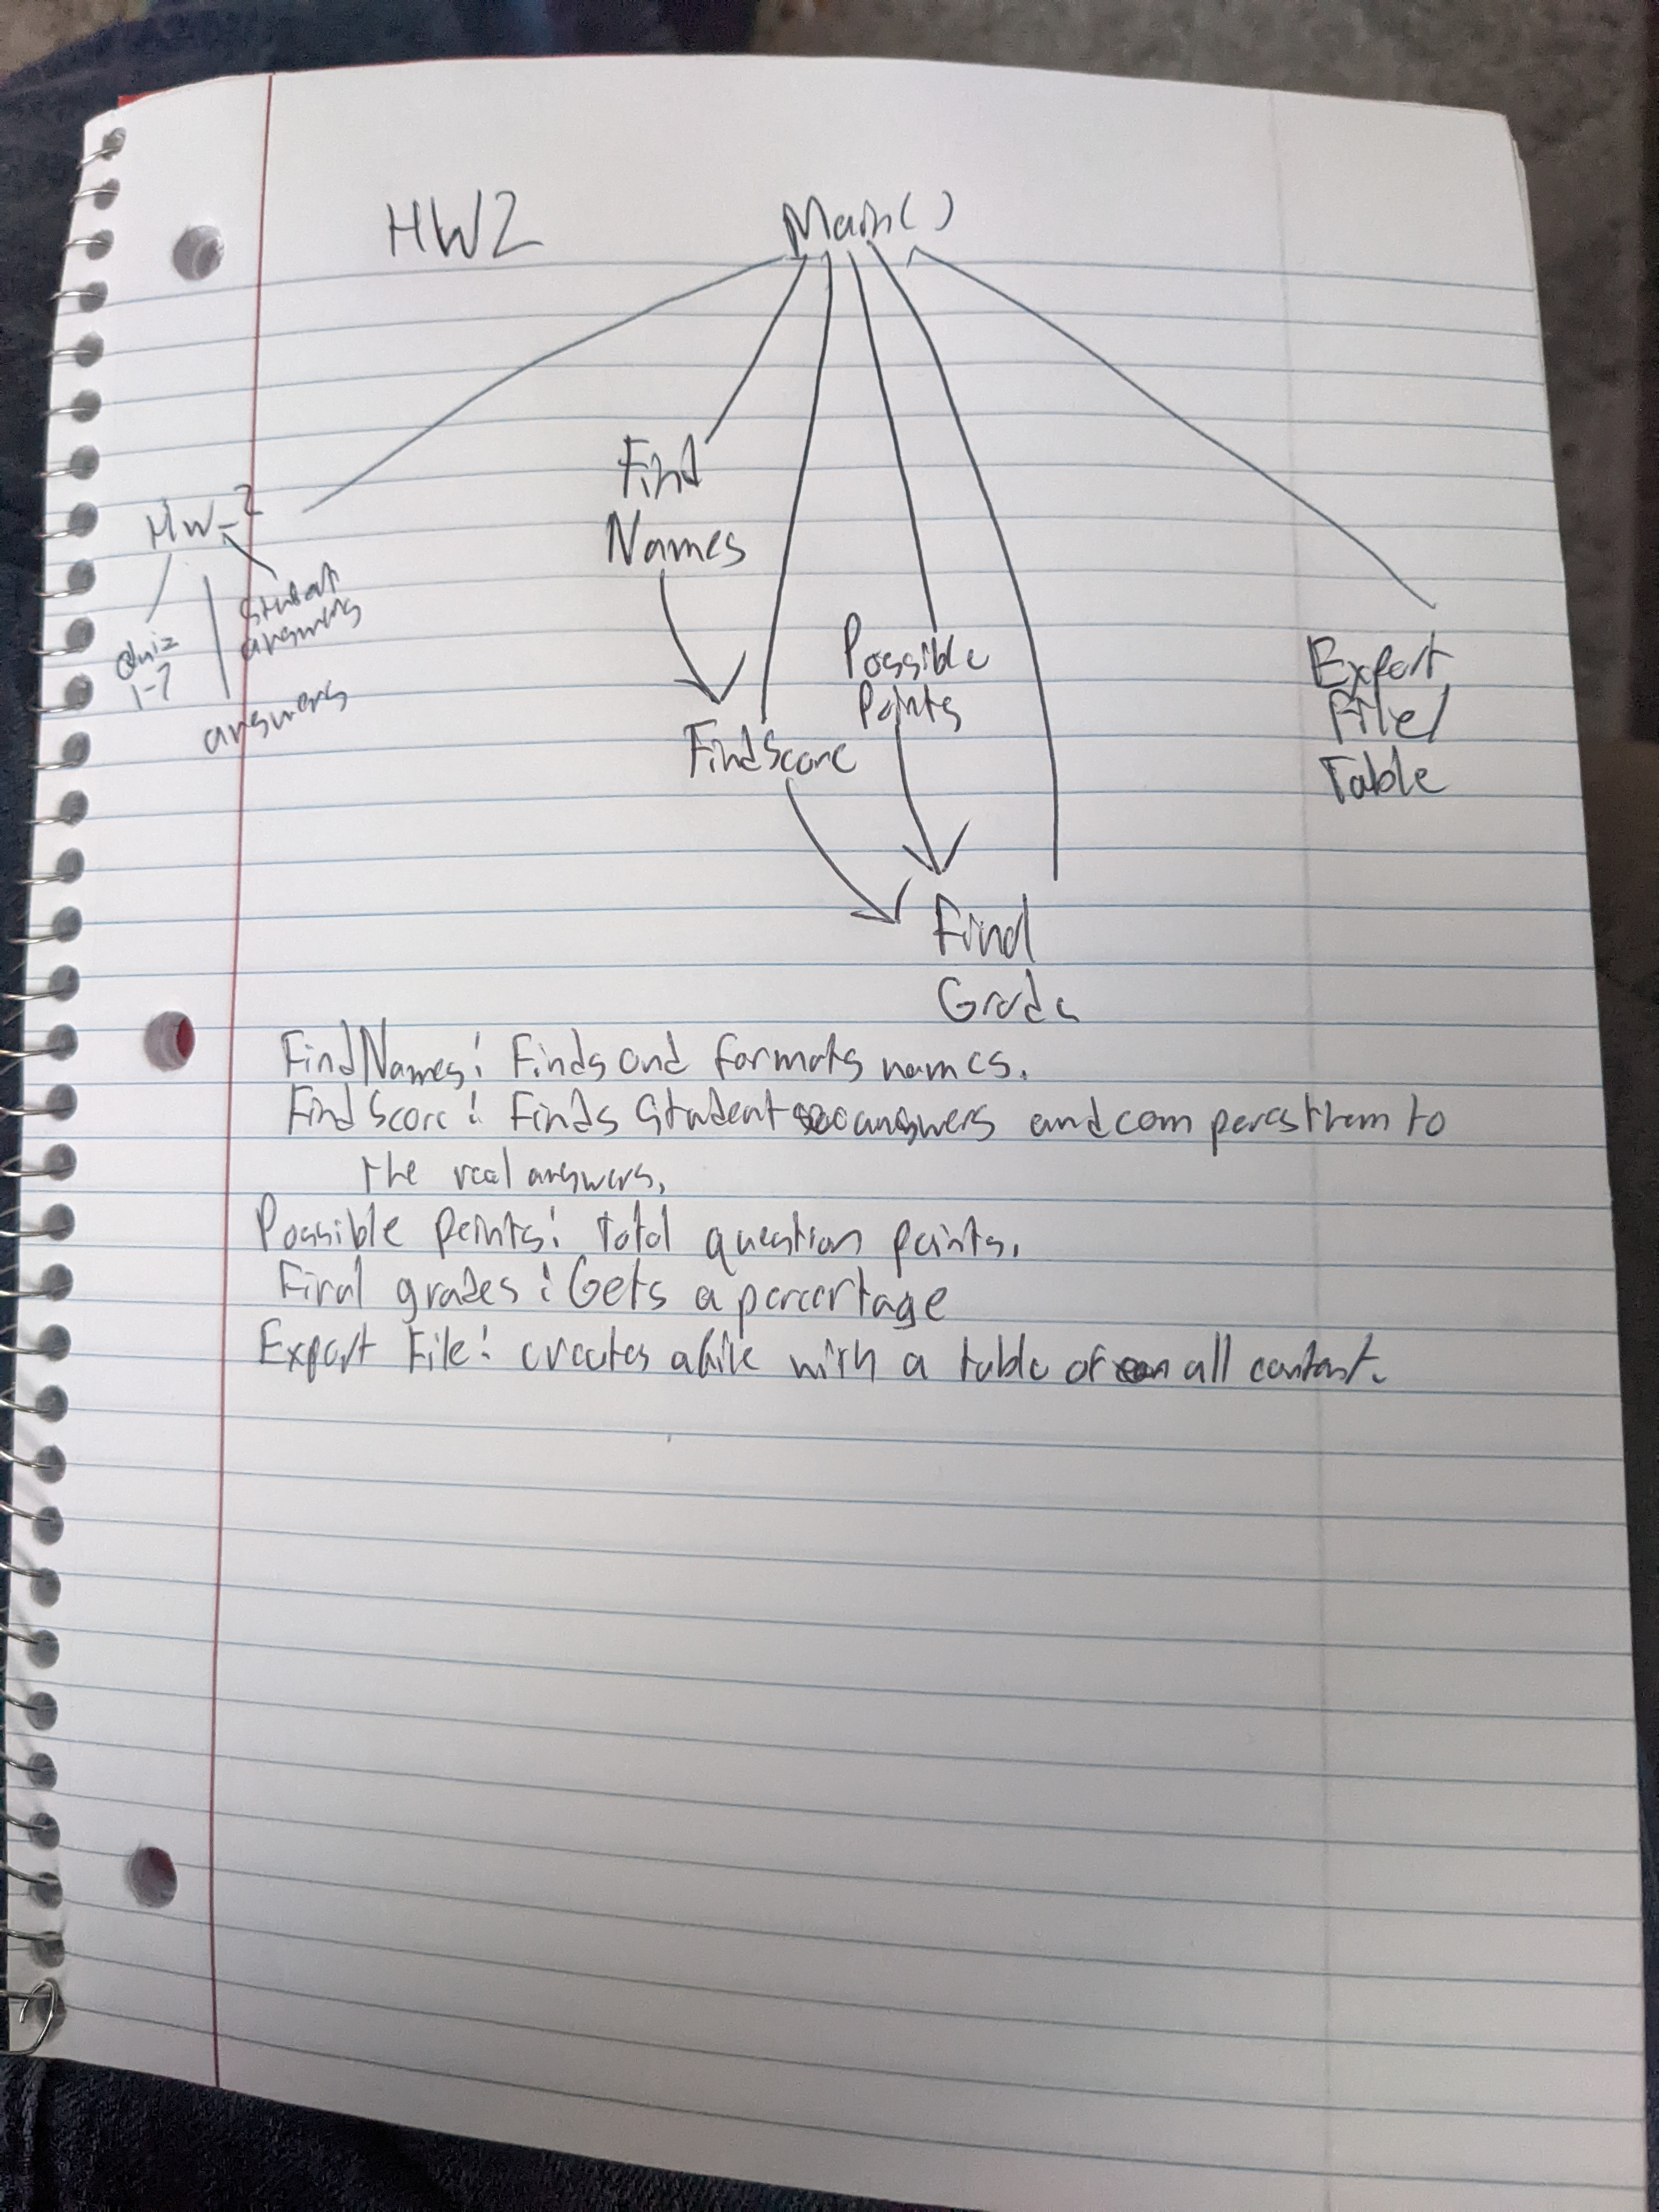 HW2
Main()
Find
Names
HW_2
Quiz
1-7
answers
answers
Possible
Points
FindScore
Export
File/
Table
Find
Grade
FindNames: Finds and formats names.
FindScore: Finds Student answers and compares them to
the real answers.
Possible points: total question points.
Final grades: Gets a percentage
Export File: creates a file with a table of all content.